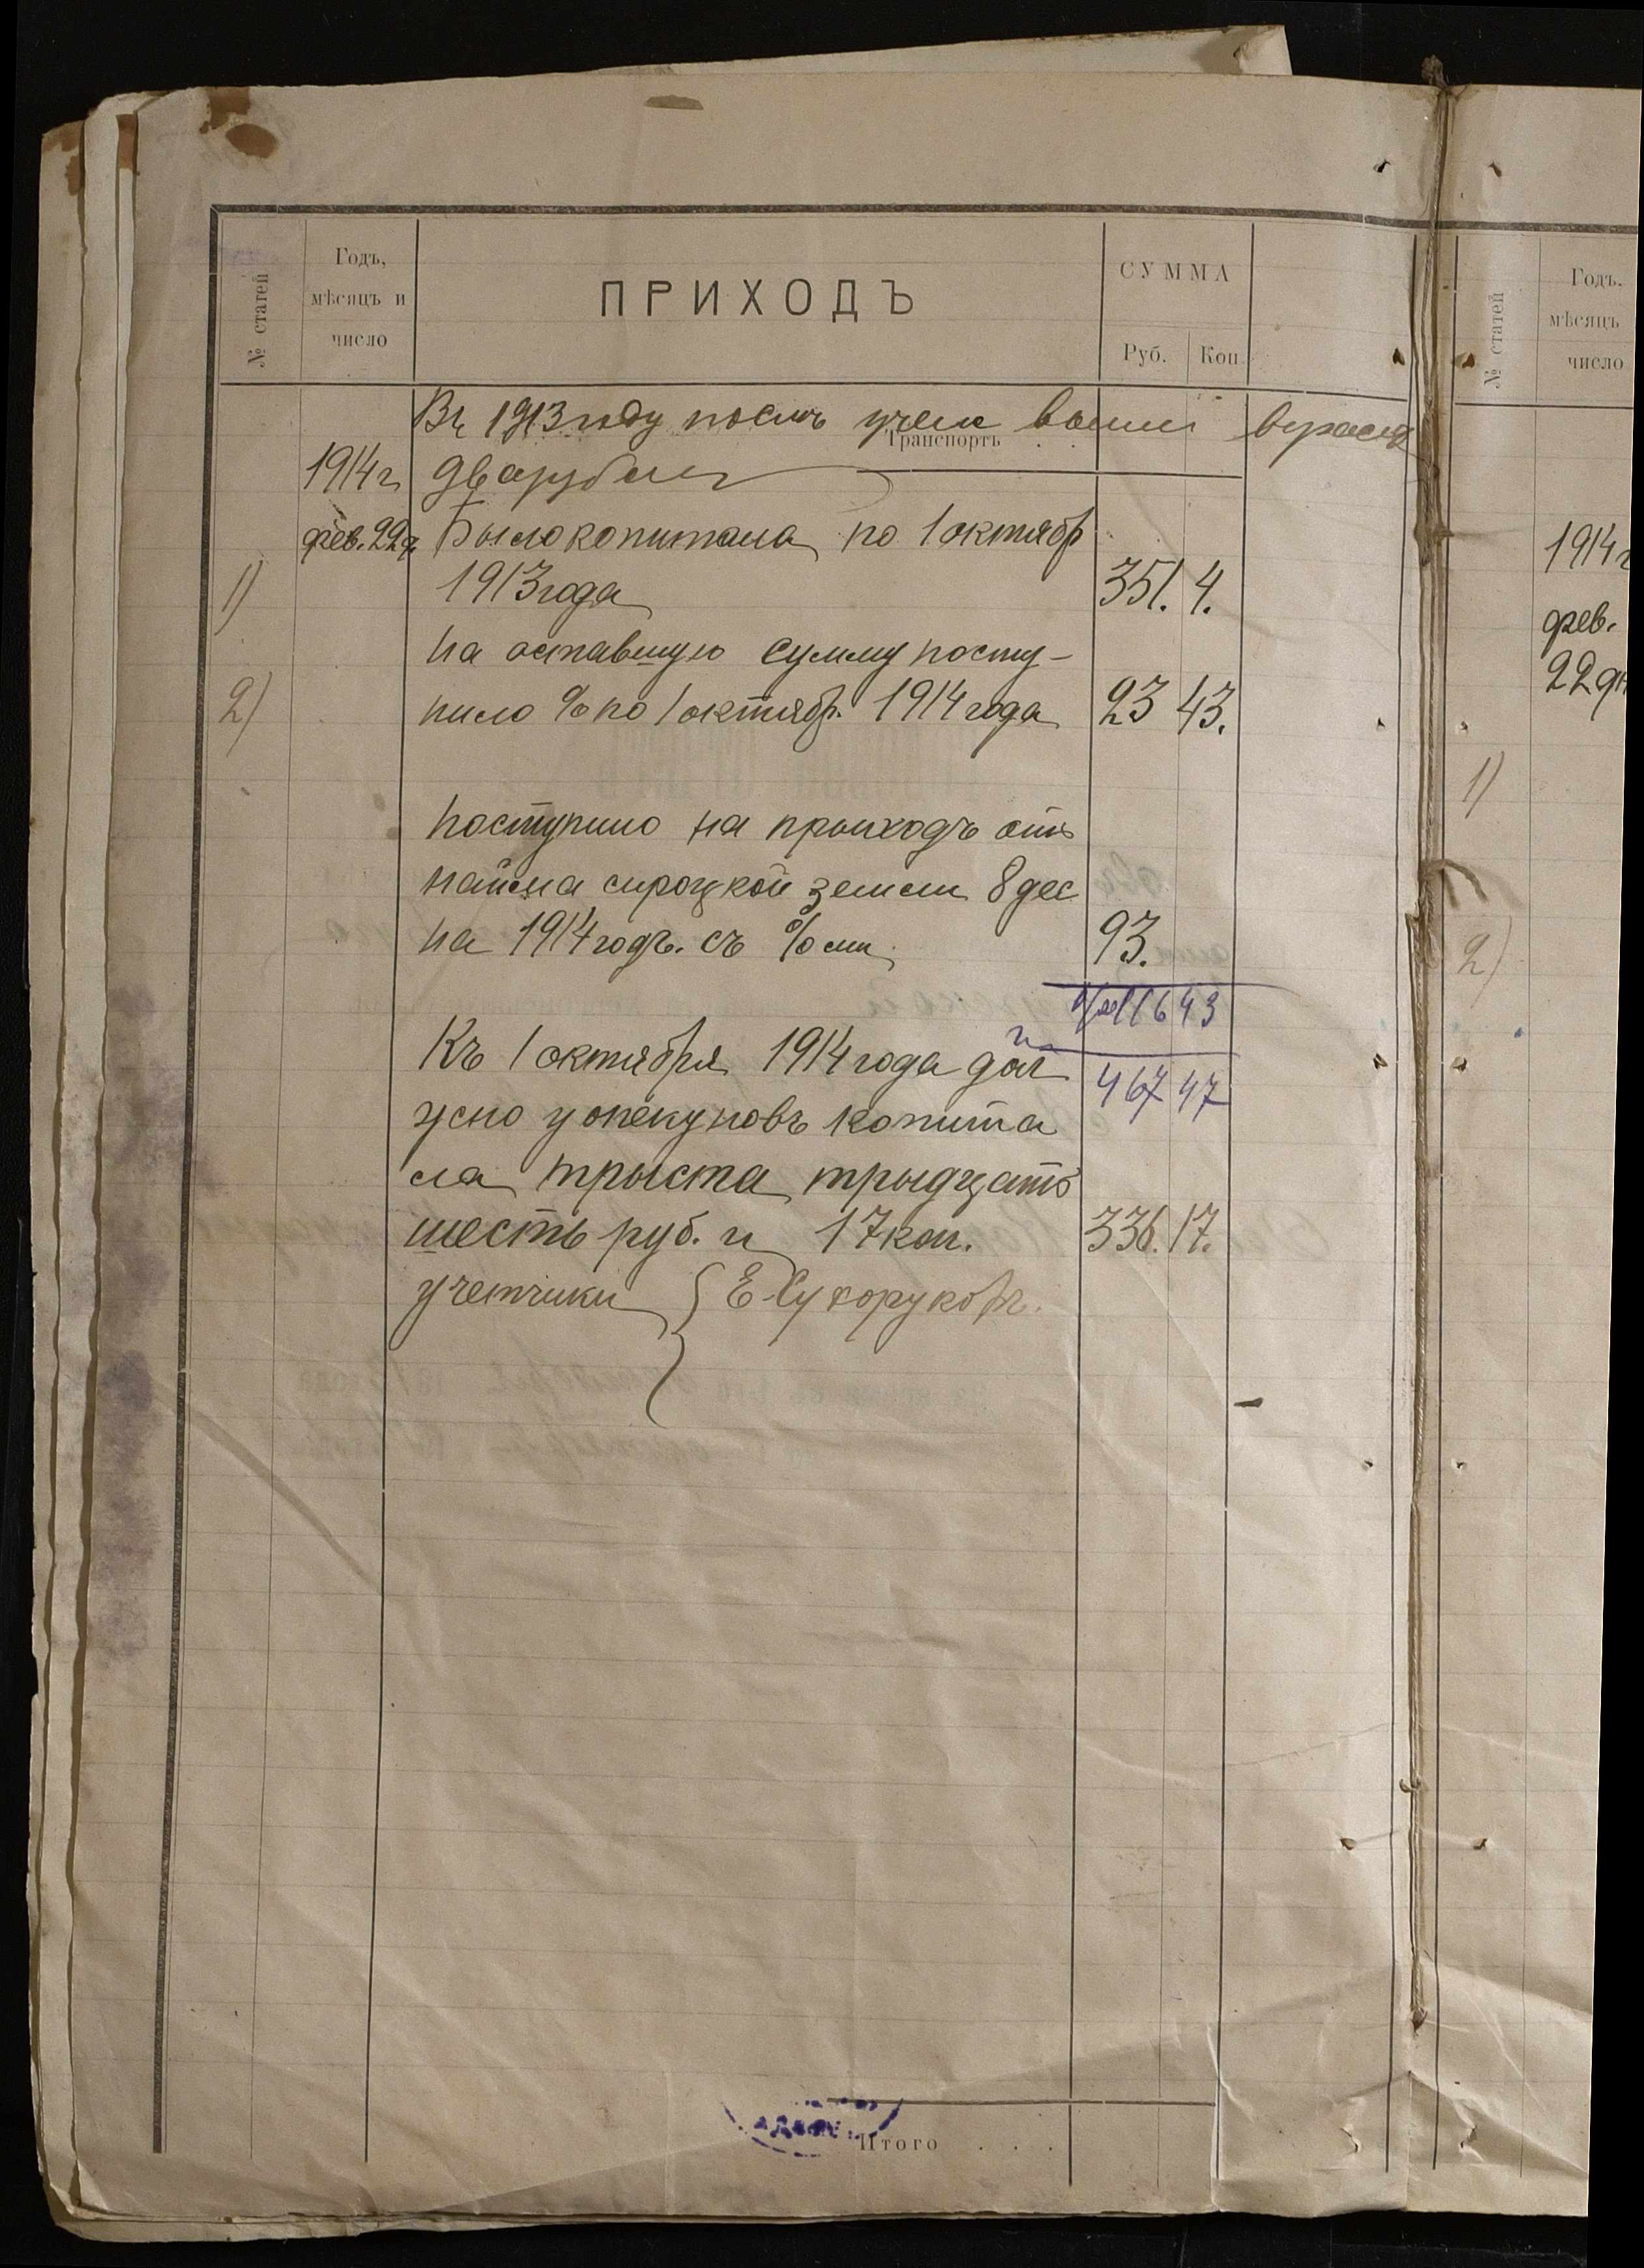 № статей
Годъ,
мѣсяцъ и
число
ПРИХОДЪ
СУММА
Руб. Коп.
Въ 1913 году послѣ учета вышли врасход
Транспортъ
1914 г. два рубли
фев. 22 д. Было копитала по 1 октябр
1) 1913 года 351. 4.
на оставшую сумму посту-
2) пило % по 1 октябр. 1914 года 23 43.
поступило на прыходъ отъ
найма сироцкой земли 8 дес
на 1914 годъ. съ %ми 93.
116 43
Къ 1 октября 1914 года дол
467 47
жно у опекуновъ копита
ла трыста трыдцать
шесть руб. и 17 коп. 336. 17.
учетчики Е. Сухоруковъ.
Итого . . .
№ статей
Годъ,
мѣсяцъ
число
1914 г
фев.
22 дн
1)
2)